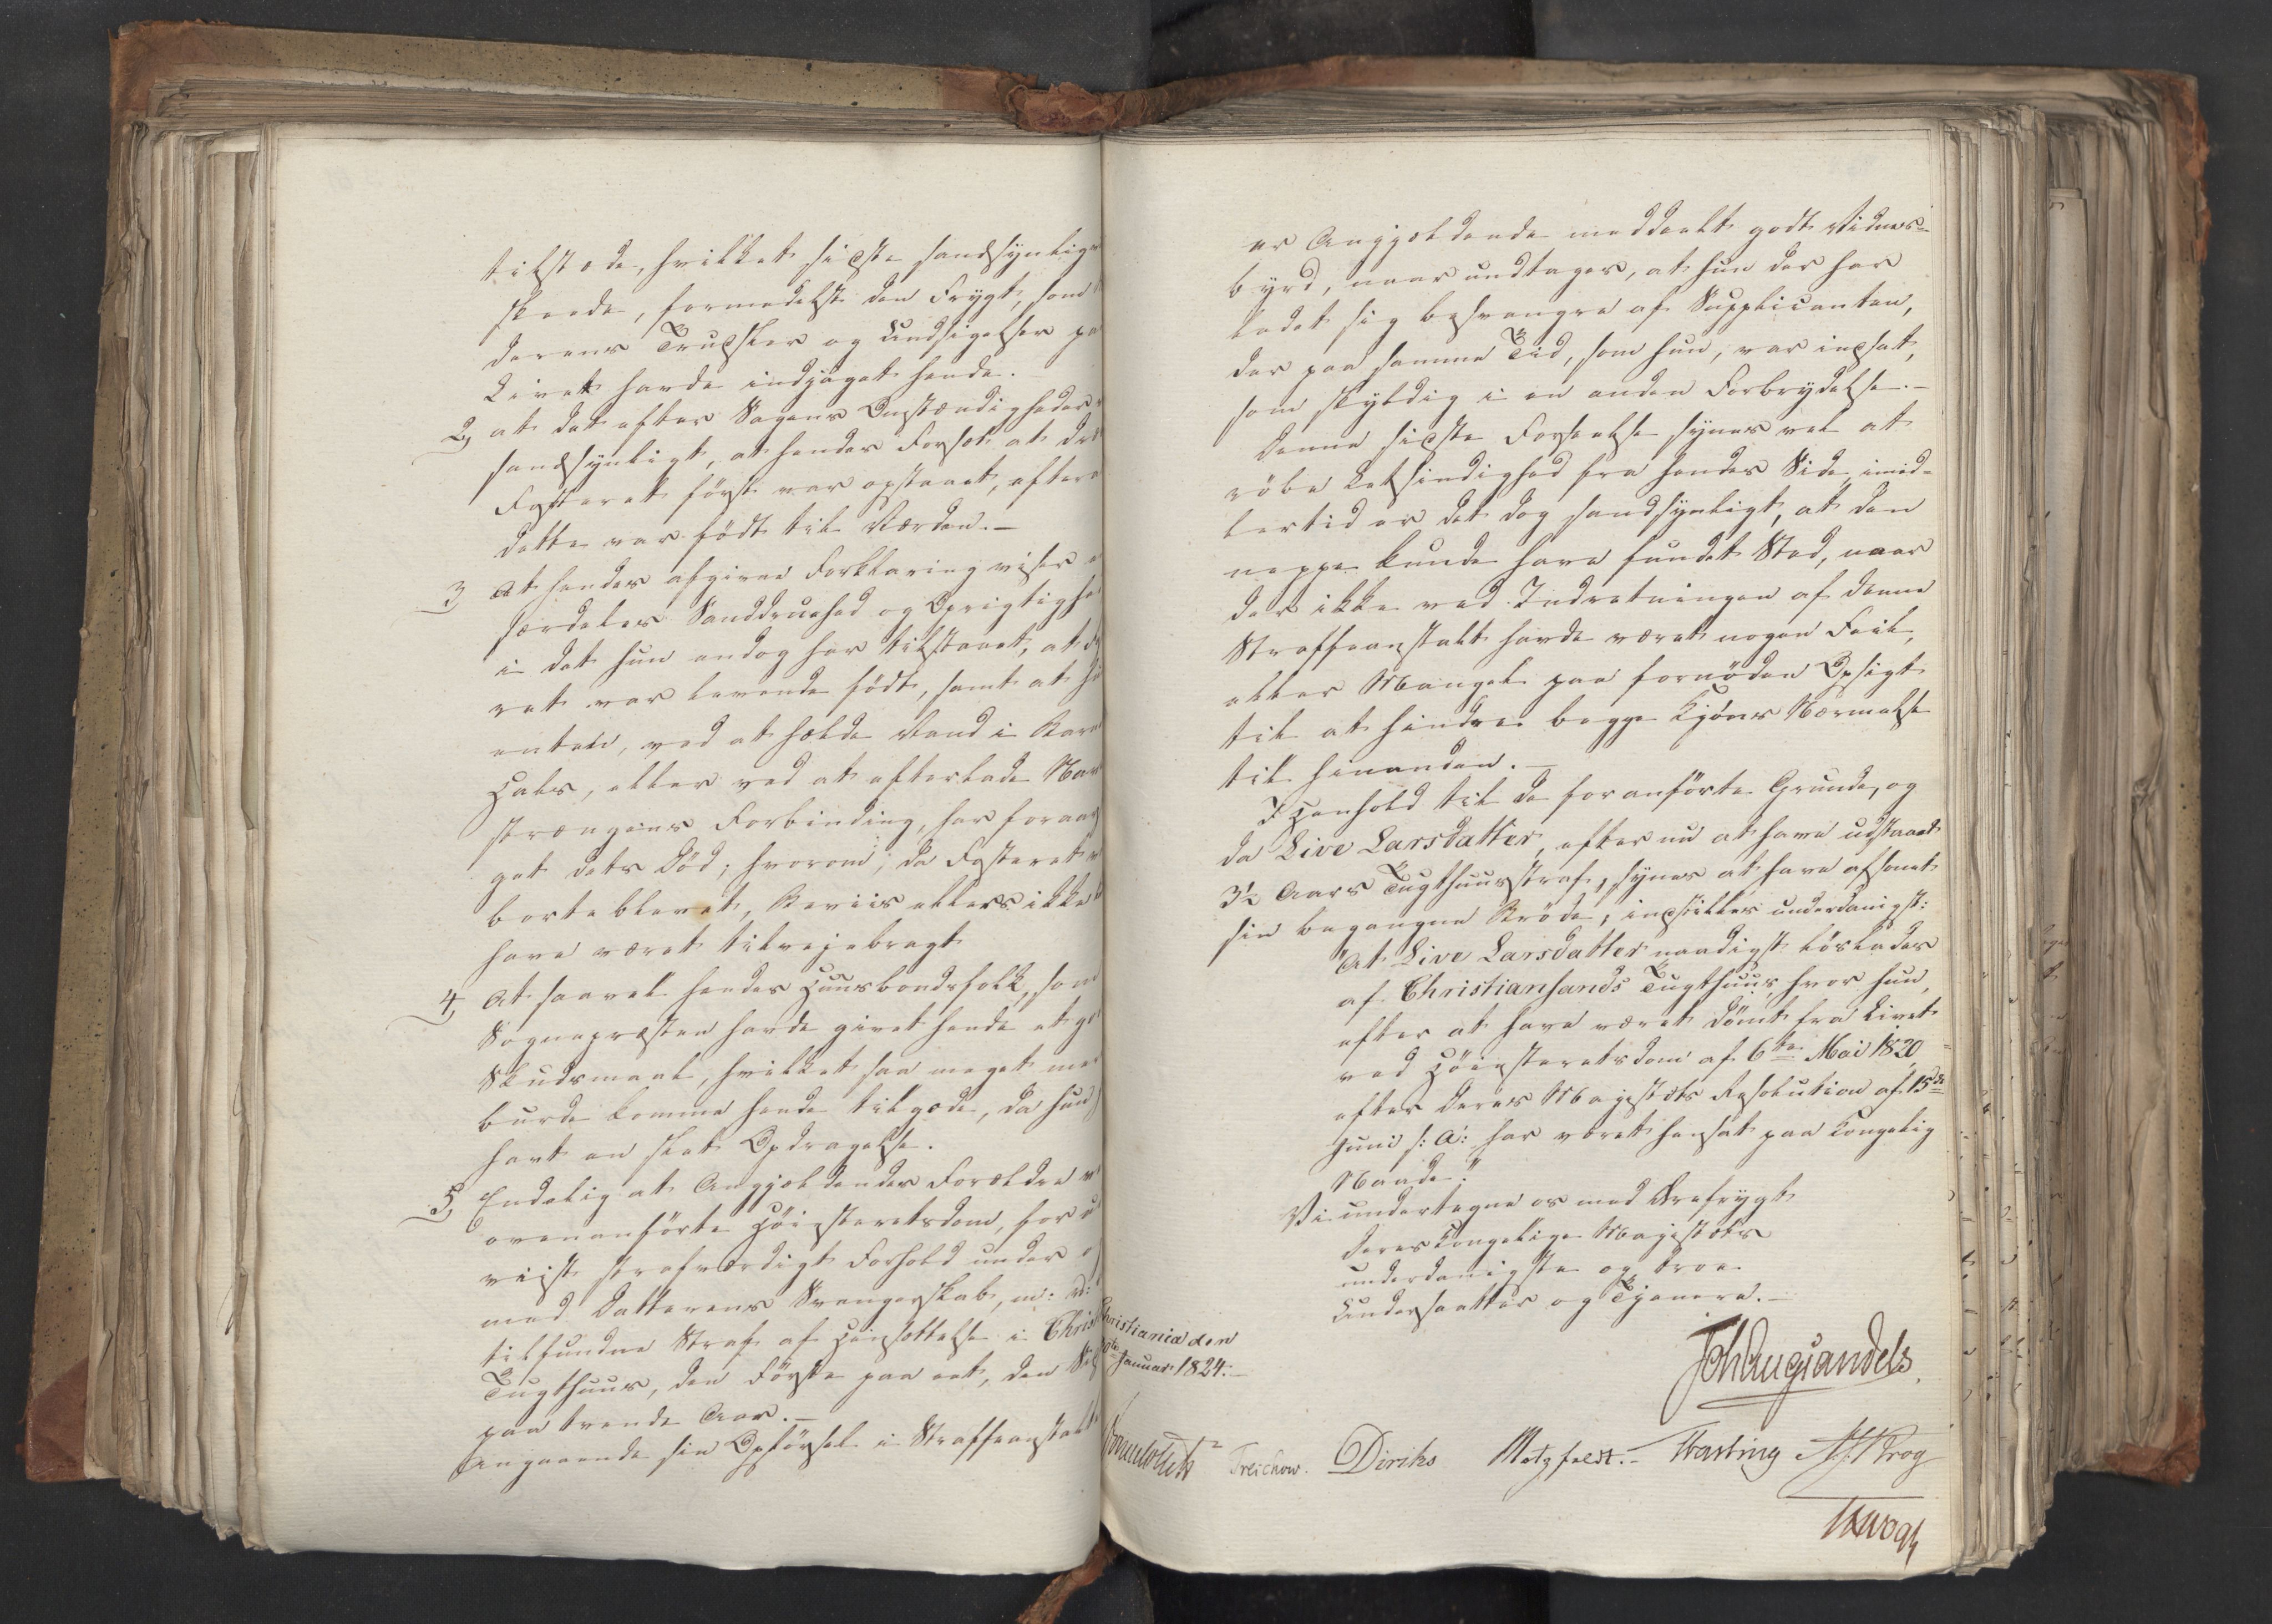 tilstæde, hvilket sidste sandsynlig
skeede, formedelst den Frygt, som
derens Trudsler og Undsigelser pa
Livet havde indjaget hende.
2, at det efter Sagens Omstændigheder
sandsynligt, at hendes Forsæt at dr
Fosteret først var opstaaet, efter
dette var født til Verden.–
3 At hendes afgivne Forklaring viser
særdeles Sanddruehed og Oprigtighe
i det hun endog har tilstaaet, at
ret var levende født, samt at h
enten, ved at holde Haand i Barn
Hals, eller ved at efterlade Nav
strængens Forbinding, har foraar
get dets Død; hvorom, da Fosteret
borteblevet, Beviis ellers ikke
have været tilvejebragt
4, At saavel hendes Huusbondsfolk, som
Sognepræsten havde givet hende et go
Skudsmaal, hvilket saa meget me
burde komme hende tilgode, da hun
havt en slet Opdragelse.
5, Endelig at Angjældendes Forældre v
ovenanførte Høiesteretsdom, for u
viist strafværdigt Forhold under
med Datterens Svangerskab, m: v:
tilfundne Straf af Hensættelse i Chris
Tugthuus, den Første paa eet, den Sids
paa trende Aar.–
Angaaende sin Opførsel i Straffeanstalt
er Angjældende meddeelt godt Vidnes-
byrd, naar undtages, at hun der har
ladet sig besvangre af Supplicanten,
der paa samme Tid, som hun, var indsat,
som skyldig i en anden Forbrydelse.–
Denne sidste Forseelse synes vel at
røbe Letsindighed fra hendes Side, imid-
lertid er det dog sandsynligt, at den
neppe kunde have fundet Sted, naar
der ikke ved Indretningen af denne
Straffeanstalt havde været nogen Feil,
eller Mangel paa fornøden Opsigt
til at hindre begge Kjøns Nærmelse
til hinanden.–
I Henhold til de foranførte Grunde, og
da Live Larsdatter, efter nu at have udstaaet
3½ Aars Tugthuusstraf, synes at have afsonet
sin begangne Brøde, indstilles underdanigst:
"At Live Larsdatter naadigst løslades
af Christiansands Tugthuus hvor hun,
efter at have været dømt fra Livet
ved Høiesteretsdom af 6te Mai 1820,
efter Deres Majestæts Resolution af 15de
Juni s: A: har været hensat paa Kongelig
Naade."
Vi undertegne os med Ærefrygt
Deres Kongelige Majestæts
underdanigste og troe
Undersaatter og Tjenere.–
Christiania den
Januar 1824.–
Joh Aug Sandels.
Sommerhielm Treschow. Diriks Motzfeldt.– Fasting J Krog